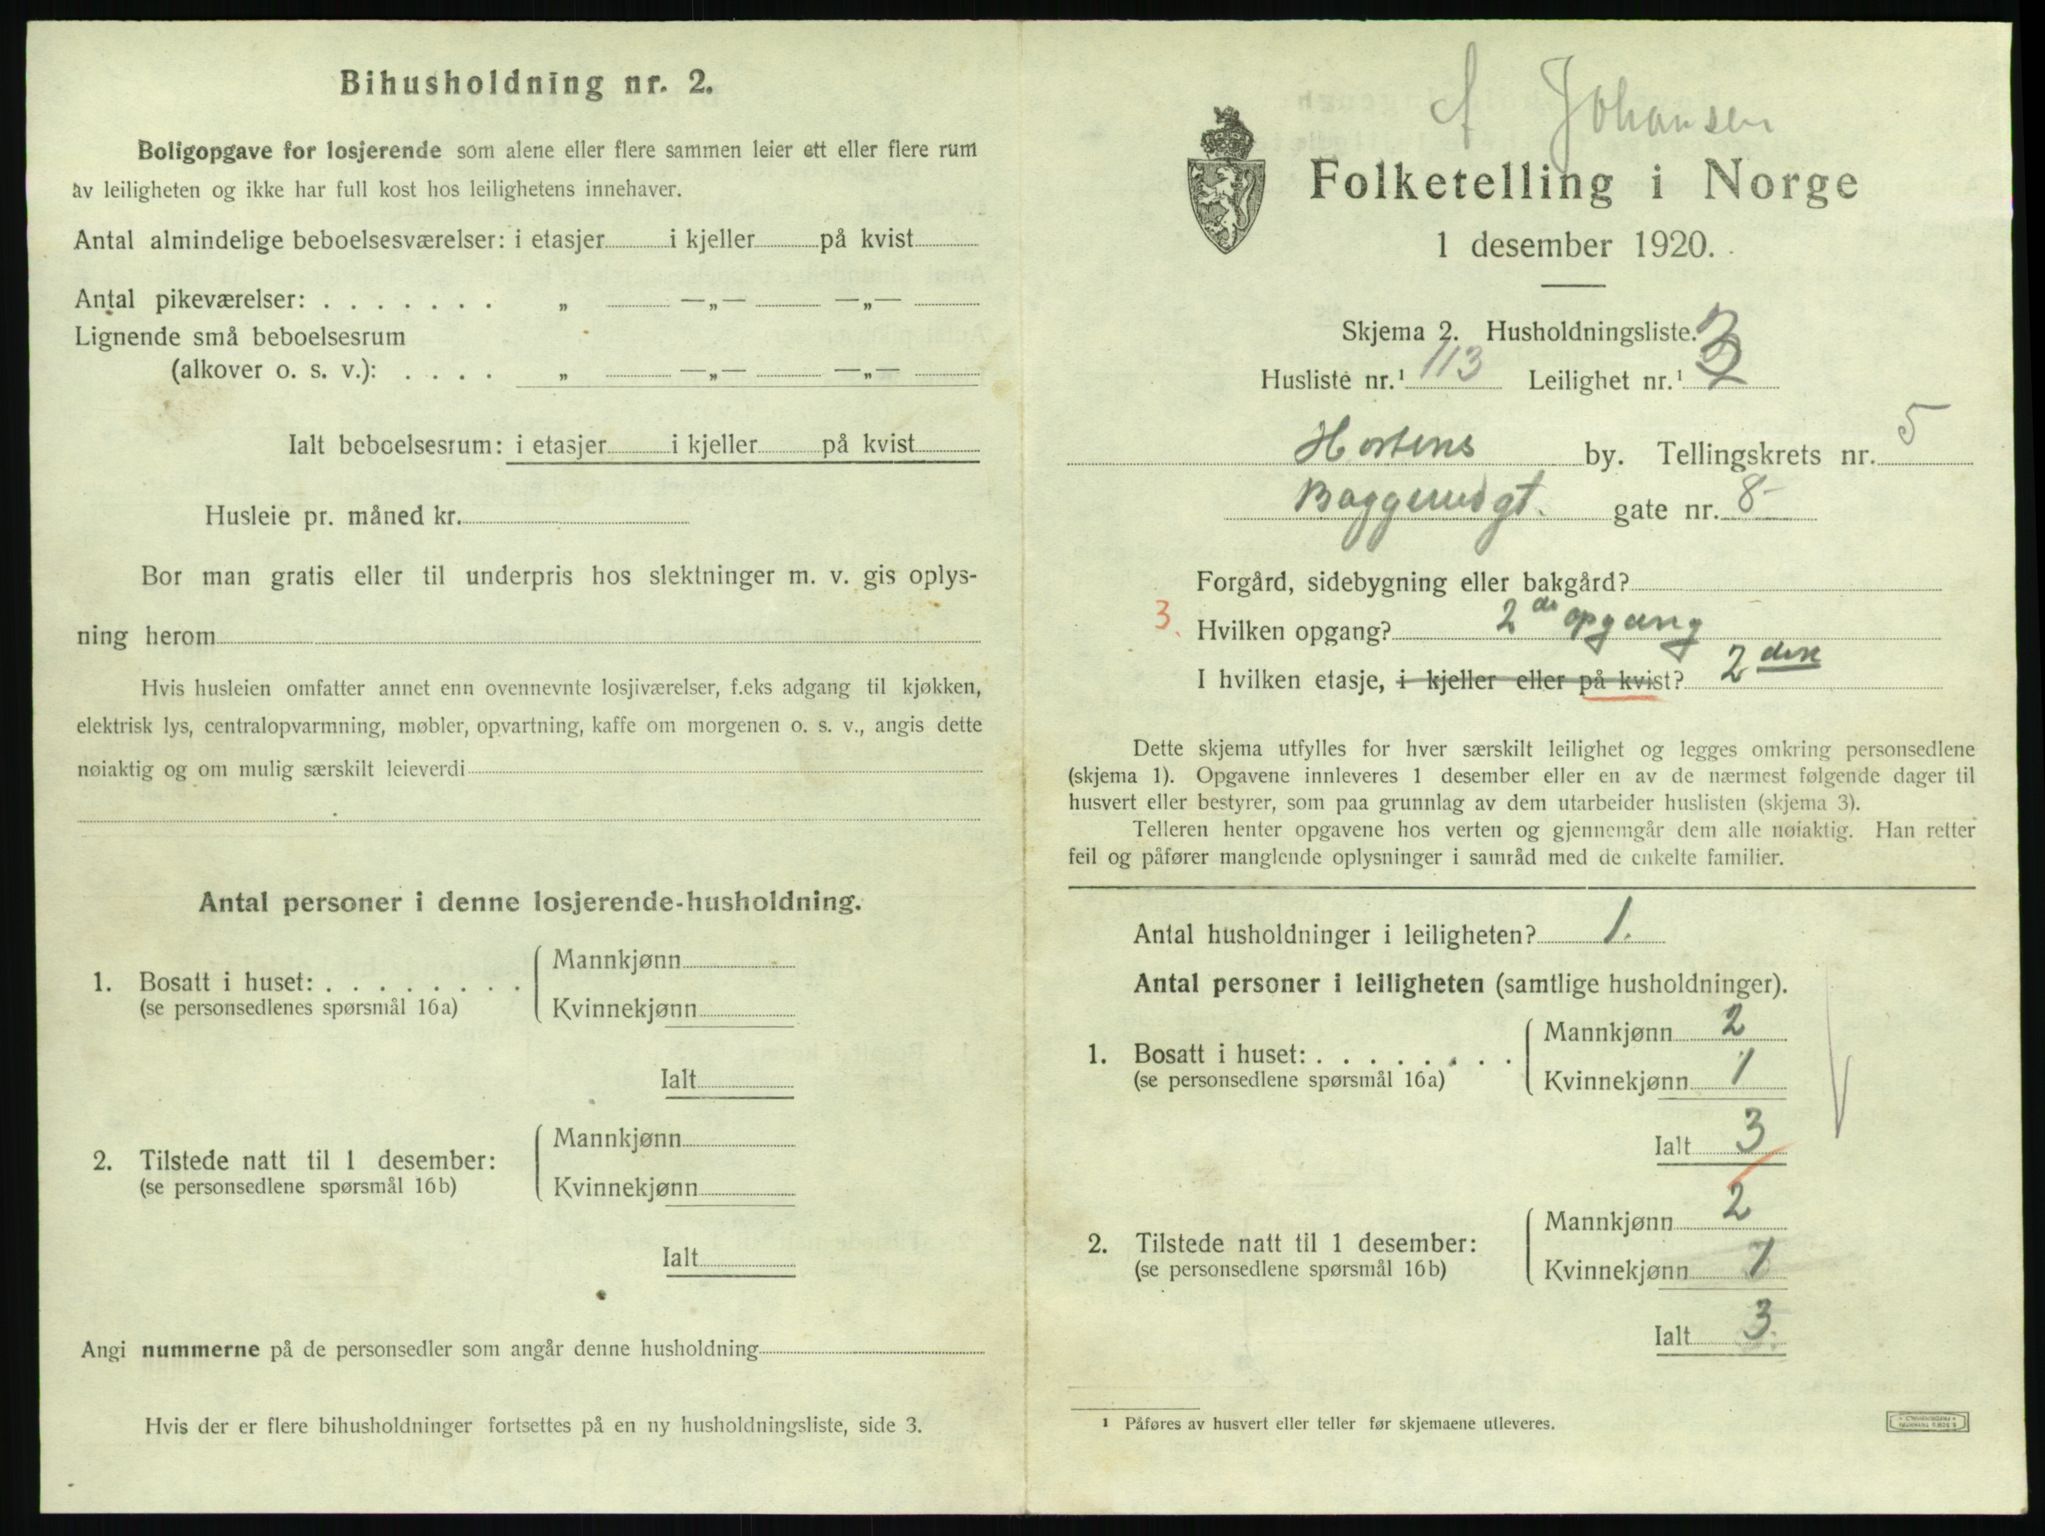 Bihusholdning nr. 2.
Boligopgave for losjerende som alene eller flere sammen leier ett eller flere rum
av leiligheten og ikke har full kost hos leilighetens innehaver.
Antal almindelige beboelsesværelser: i etasjer i kjeller på kvist
Antal pikeværelser: . . . . . . . „ —„— —„—
Lignende små beboelsesrum
(alkover o. s. v.): . . . . „ —„— —„—
Ialt beboelsesrum: i etasjer i kjeller på kvist
Husleie pr. måned kr.
Bor man gratis eller til underpris hos slektninger m. v. gis oplys-
ning herom
Hvis husleien omfatter annet enn ovennevnte losjiværelser, f.eks adgang til kjøkken,
elektrisk lys, centralopvarmning, møbler, opvartning, kaffe om morgenen o. s. v., angis dette
nøiaktig og om mulig særskilt leieverdi
Antal personer i denne losjerende-husholdning.
1. Bosatt i huset: . . . . . . . . Mannkjønn
(se personsedlenes spørsmål 16a) Kvinnekjønn
Ialt
2. Tilstede natt til 1 desember: Mannkjønn
(se personsedlene spørsmål 16b) Kvinnekjønn
Ialt
Angi nummerne på de personsedler som angår denne husholdning
Hvis der er flere bihusholdninger fortsettes på en ny husholdningsliste, side 3.
A Johansen
Folketelling i Norge
1 desember 1920.
Skjema 2. Husholdningsliste.
Husliste nr.¹ 113 Leilighet nr.¹ 3
Hortens by. Tellingskrets nr. 5
Baggerudgt. gate nr. 8-
Forgård, sidebygning eller bakgård?
3. Hvilken opgang? 2de opgang
I hvilken etasje, i kjeller eller på kvist? 2den
Dette skjema utfylles for hver særskilt leilighet og legges omkring personsedlene
(skjema 1). Opgavene innleveres 1 desember eller en av de nærmest følgende dager til
husvert eller bestyrer, som paa grunnlag av dem utarbeider huslisten (skjema 3).
Telleren henter opgavene hos verten og gjennemgår dem alle nøiaktig. Han retter
feil og påfører manglende oplysninger i samråd med de enkelte familier.
Antal husholdninger i leiligheten? 1.
Antal personer i leiligheten (samtlige husholdninger).
1. Bosatt i huset: . . . . . . . . Mannkjønn 2
(se personsedlene spørsmål 16a) Kvinnekjønn 1
Ialt 3
2. Tilstede natt til 1 desember: Mannkjønn 2
(se personsedlene spørsmål 16b) Kvinnekjønn 1
Ialt 3.
¹ Påføres av husvert eller teller før skjemaene utleveres.